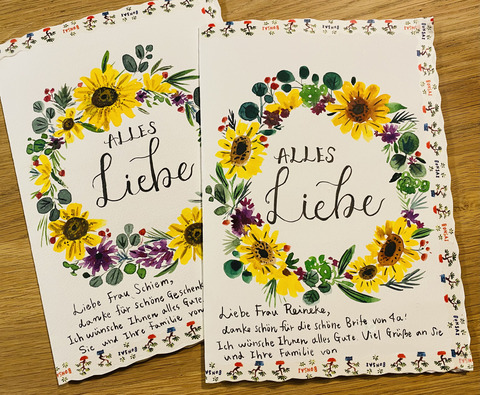 ALLES
Liebe
Liebe Frau Schiem,
danke für schöne Geschenk
Ich wünsche Ihnen alles Gute
Sie und Ihre Familie von
BONSAI
ALLES
Liebe
Liebe Frau Reineke,
danke schön für die schöne Brite von 4a!
Ich wünsche Ihnen alles Gute. Viel Grüße an Sie
und Ihre Familie von
BONSAI